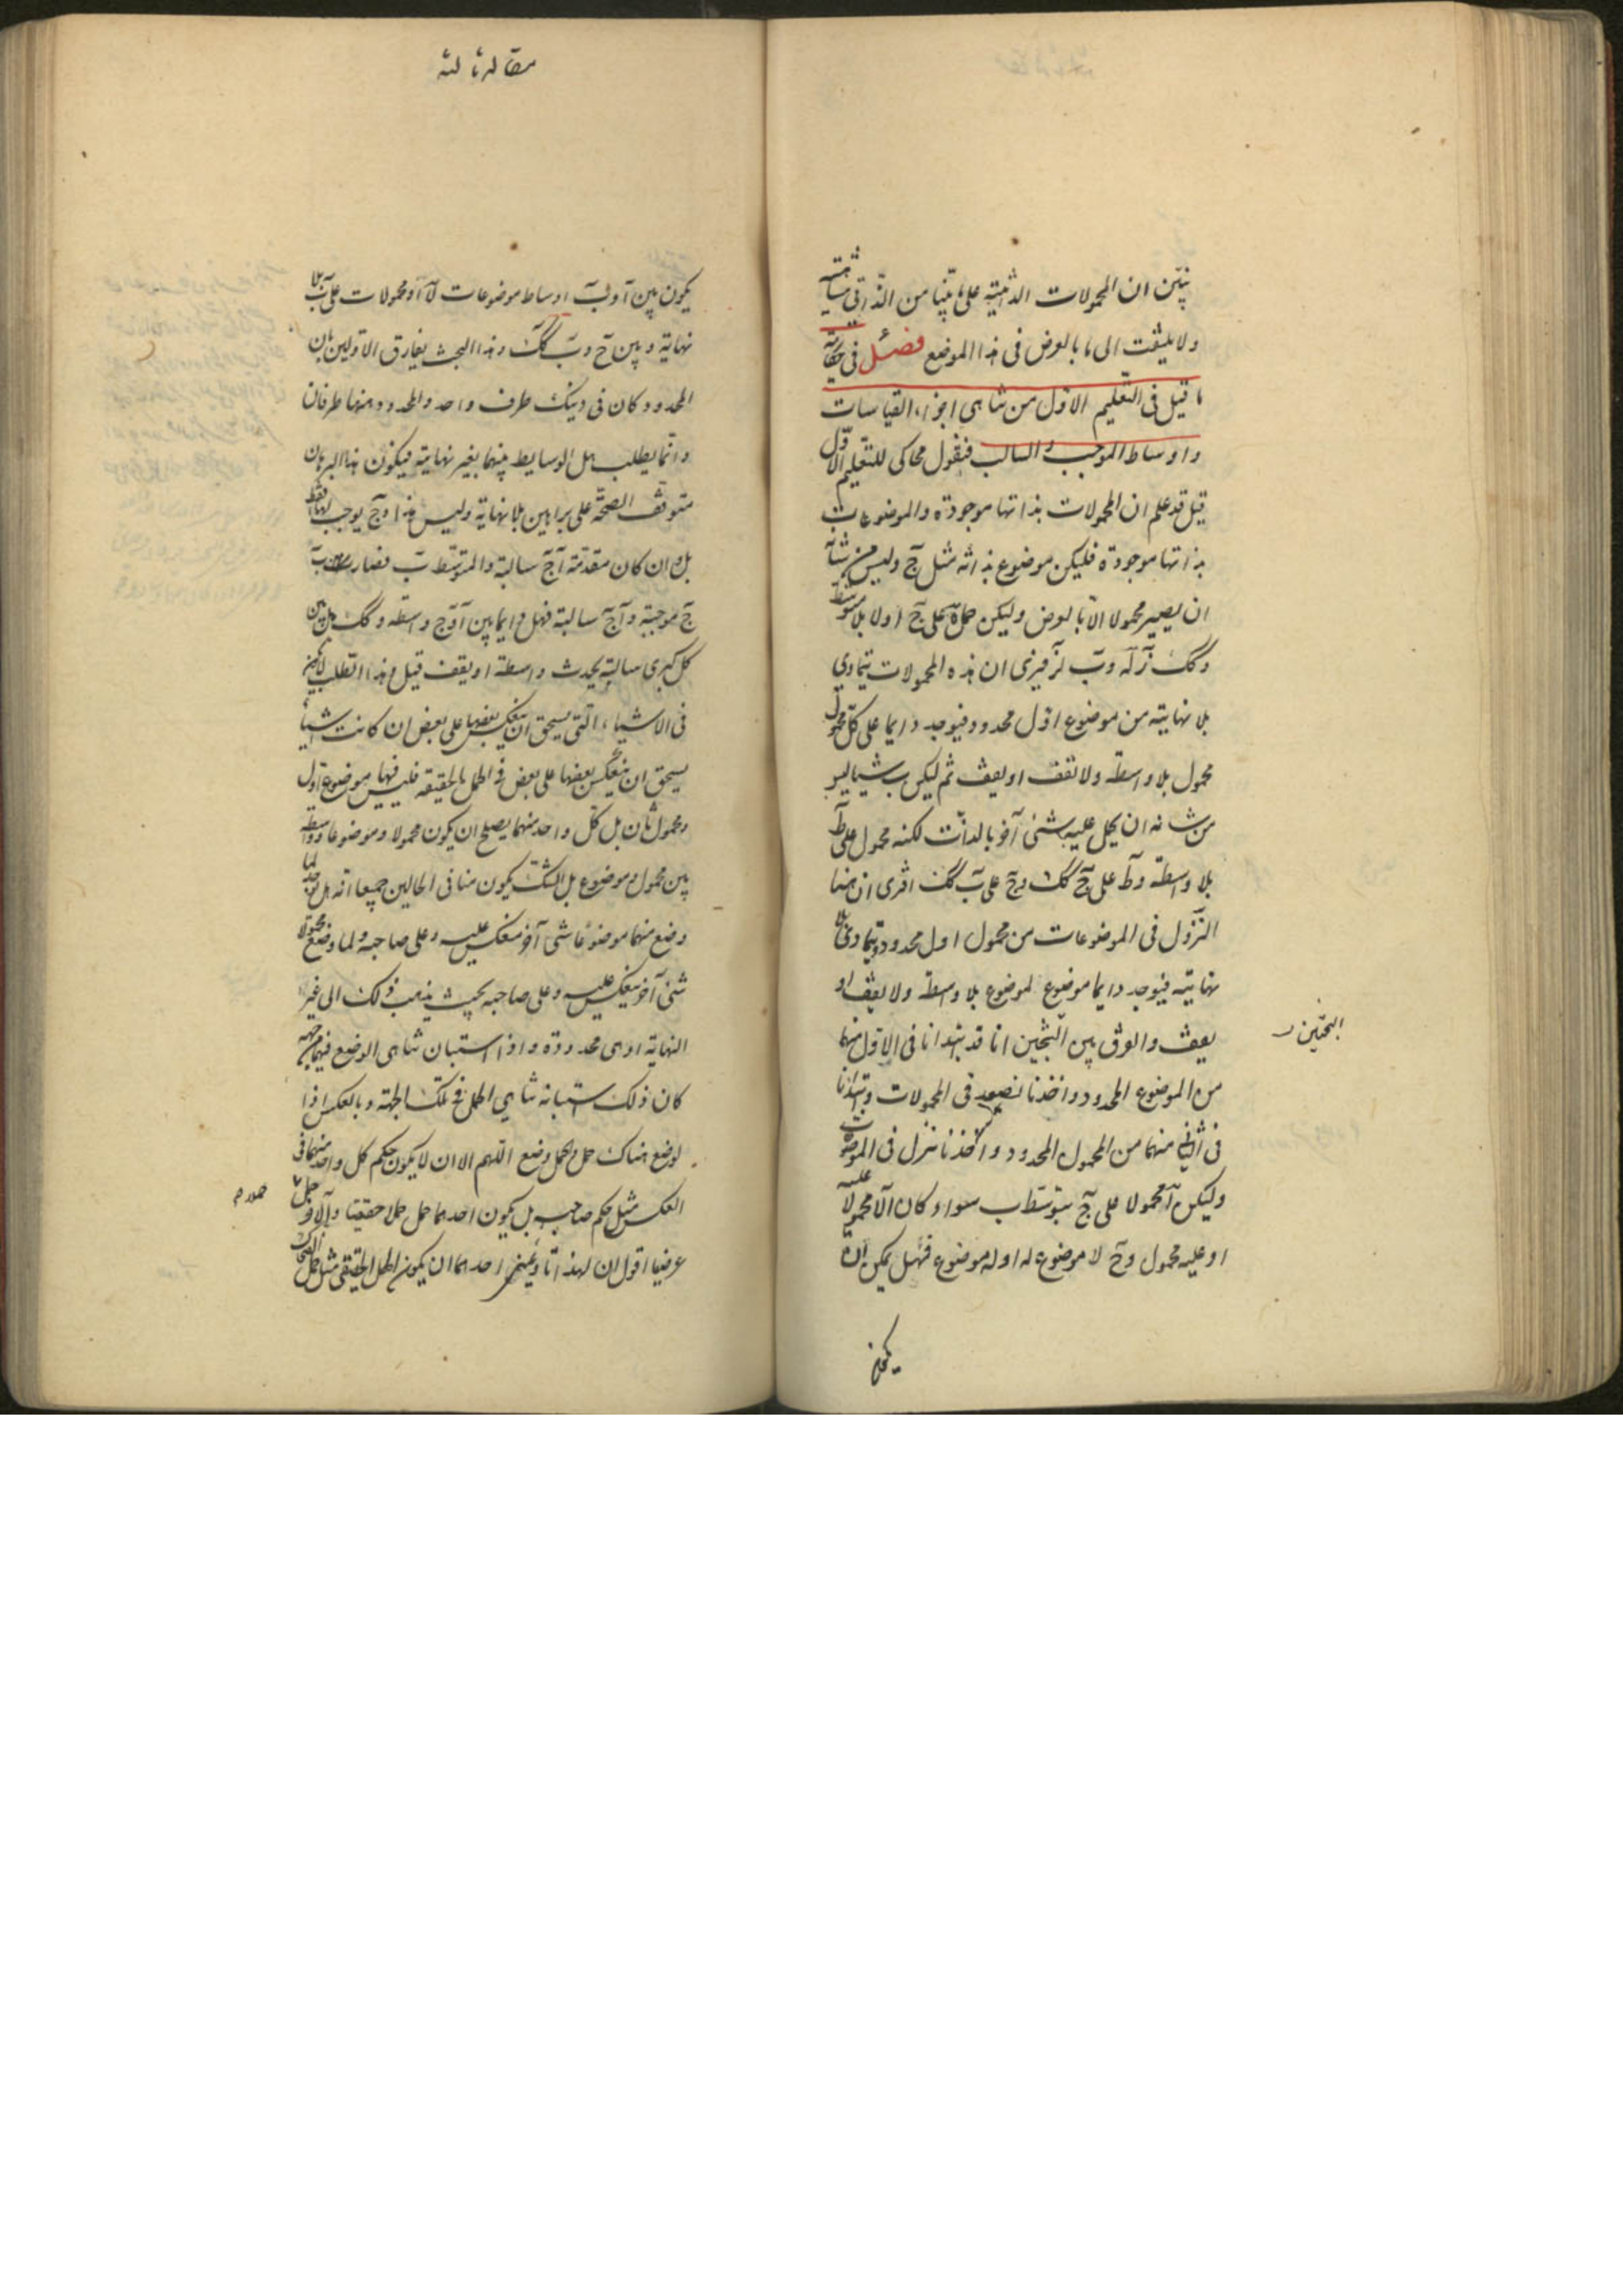 نبيّن ان المحمولات الذاتية على ما بيّنا من الذاتي متناهية
ولا يلتفت الى ما بالعرض في هذا الموضع فصل في حكاية
ما قيل في التعليم الاول من تناهى اجزاء القياسات
واوساط الموجب والسالب فنقول محاكى للتعليم الاول
قيل قد علم ان المحمولات بذاتها موجودة والموضوعات
بذاتها موجودة فليكن موضوع بذاته مثل ج وليس من شأنه
ان يصير محمولا الا بالعرض وليكن حمل ه على ج اولا بلا متوسط
وكك ز له وب لز فيرى ان هذه المحمولات يتمادى
بلا نهاية من موضوع اول محدود فيوجد دايما على كل محمول
محمول بلا واسطة ولا تقف او يقف ثم ليكن ب شيئا ليس
من شانه ان يحمل عليه شئ آخر بالذات لكنه محمول على ط
بلا واسطة وط على ح كك وح على ب كك اترى ان هنا
النزول في الموضوعات من محمول اول محدود يتمادى بلا
نهاية فيوجد دايما موضوع لموضوع بلا واسطة ولا يقف او
يقف والفرق بين البحثين انا قد ابتدانا في الاول منهما
البحثين ر
من الموضوع المحدود واخذنا نصعد في المحمولات وابتدانا
في الثاني منهما من المحمول المحدود واخذنا ننزل في الموضوعات
وليكن آ محمولا على ج بتوسط ب سواء كان آ لا محمول عليه
او عليه محمول وج لا موضوع له او له موضوع فهل يمكن ان
يكون
مقاله ثالثه
يكون بين آ وب اوساط موضوعات لآ او محمولات على ب بلا
نهاية وبين ج وب كك وهذا البحث يفارق الاولين بان
المحدود كان في ذينك طرف واحد والمحدود هنها طرفان
وانما يطلب هل الوسايط بينهما بغير نهاية فيكون هذا البرهان
متوقف الصحة على براهين بلا نهاية وليس هذا في يوجب لهما فقط
بل وان كان مقدمة آج سالبة والمتوسط ب فصارت ب
ج موجبة وآ ج سالبة فهل دايما بين آ وج واسطة وكك هل بين
كل كبرى سالبة يحدث واسطة او يقف قيل وهذا الطلب لا يمكن
في الاشياء التي يستحق ان ينعكس بعضها على بعض ان كانت اشياء
يستحق ان ينعكس بعضها على بعض في الحمل بالحقيقة فليس فيها موضوع اول
ومحمول ثان بل كل واحد منهما يصلح ان يكون محمولا وموضوعا وواسطة
بين محمول وموضوع بل الشك يكون منا في الحالين جميعا انه هل يوجد لما
وضع منهما موضوعا شئ آخر منعكس عليه وعلى صاحبه ولما وضع محمولا
شئ آخر ينعكس عليه وعلى صاحبه بحيث يذهب ذلك الى غير
النهاية او هى محدودة واذا استبان تناهى الوضع فيهما من جهة
كان ذلك استبانة تناهى الحمل في تلك الجهة وبالعكس اذا
لوضع هناك حمل وللحمل وضع اللهم الا ان لا يكون حكم كل واحد منهما في
العكس مثل حكم صاحبه بل يكون احدهما حمل حملا حقيقيا والآخر حمل
عرضيا اقول ان لهذا تاويلين احدهما ان يكون الحمل الحقيقي مثل حمل الضحاك